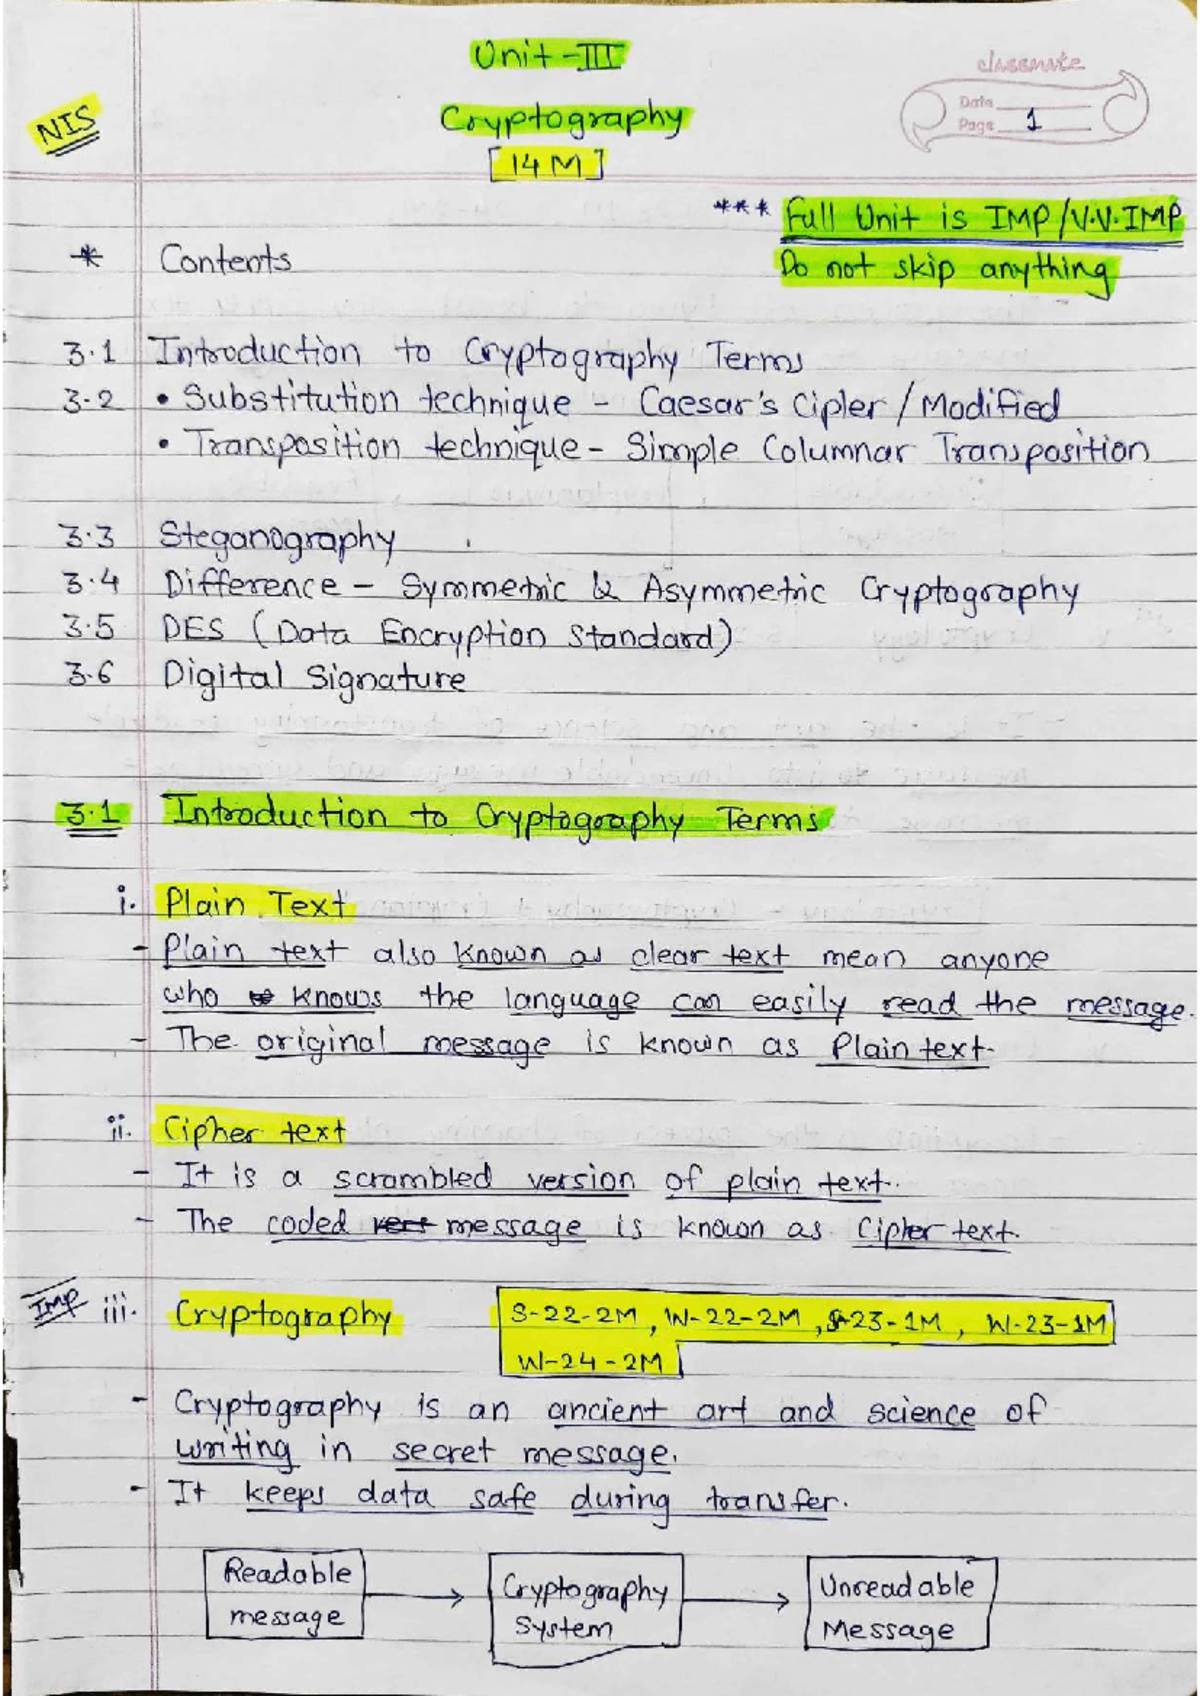 Unit-III
classmate
Date
Page 1
NIS
Cryptography
[14 M]
*** Full Unit is IMP/V.V.IMP
Do not skip anything
* Contents
3.1 Introduction to Cryptography Terms
3.2 • Substitution technique - Caesar's Cipler / Modified
• Transposition technique - Simple Columnar Transposition
3.3 Steganography
3.4 Difference - Symmetric & Asymmetric Cryptography
3.5 DES (Data Encryption Standard)
3.6 Digital Signature
3.1 Introduction to Cryptography Terms
i. Plain Text
- Plain text also known as clear text mean anyone
who knows the language can easily read the message.
- The original message is known as Plain text.
ii. Cipher text
- It is a scrambled version of plain text.
- The coded vers message is known as Cipher text.
Imp iii. Cryptography
S-22-2M, W-22-2M, S-23-1M, W-23-1M
W-24-2M
- Cryptography is an ancient art and science of
writing in secret message.
- It keeps data safe during transfer.
Readable
message
Cryptography
System
Unreadable
Message